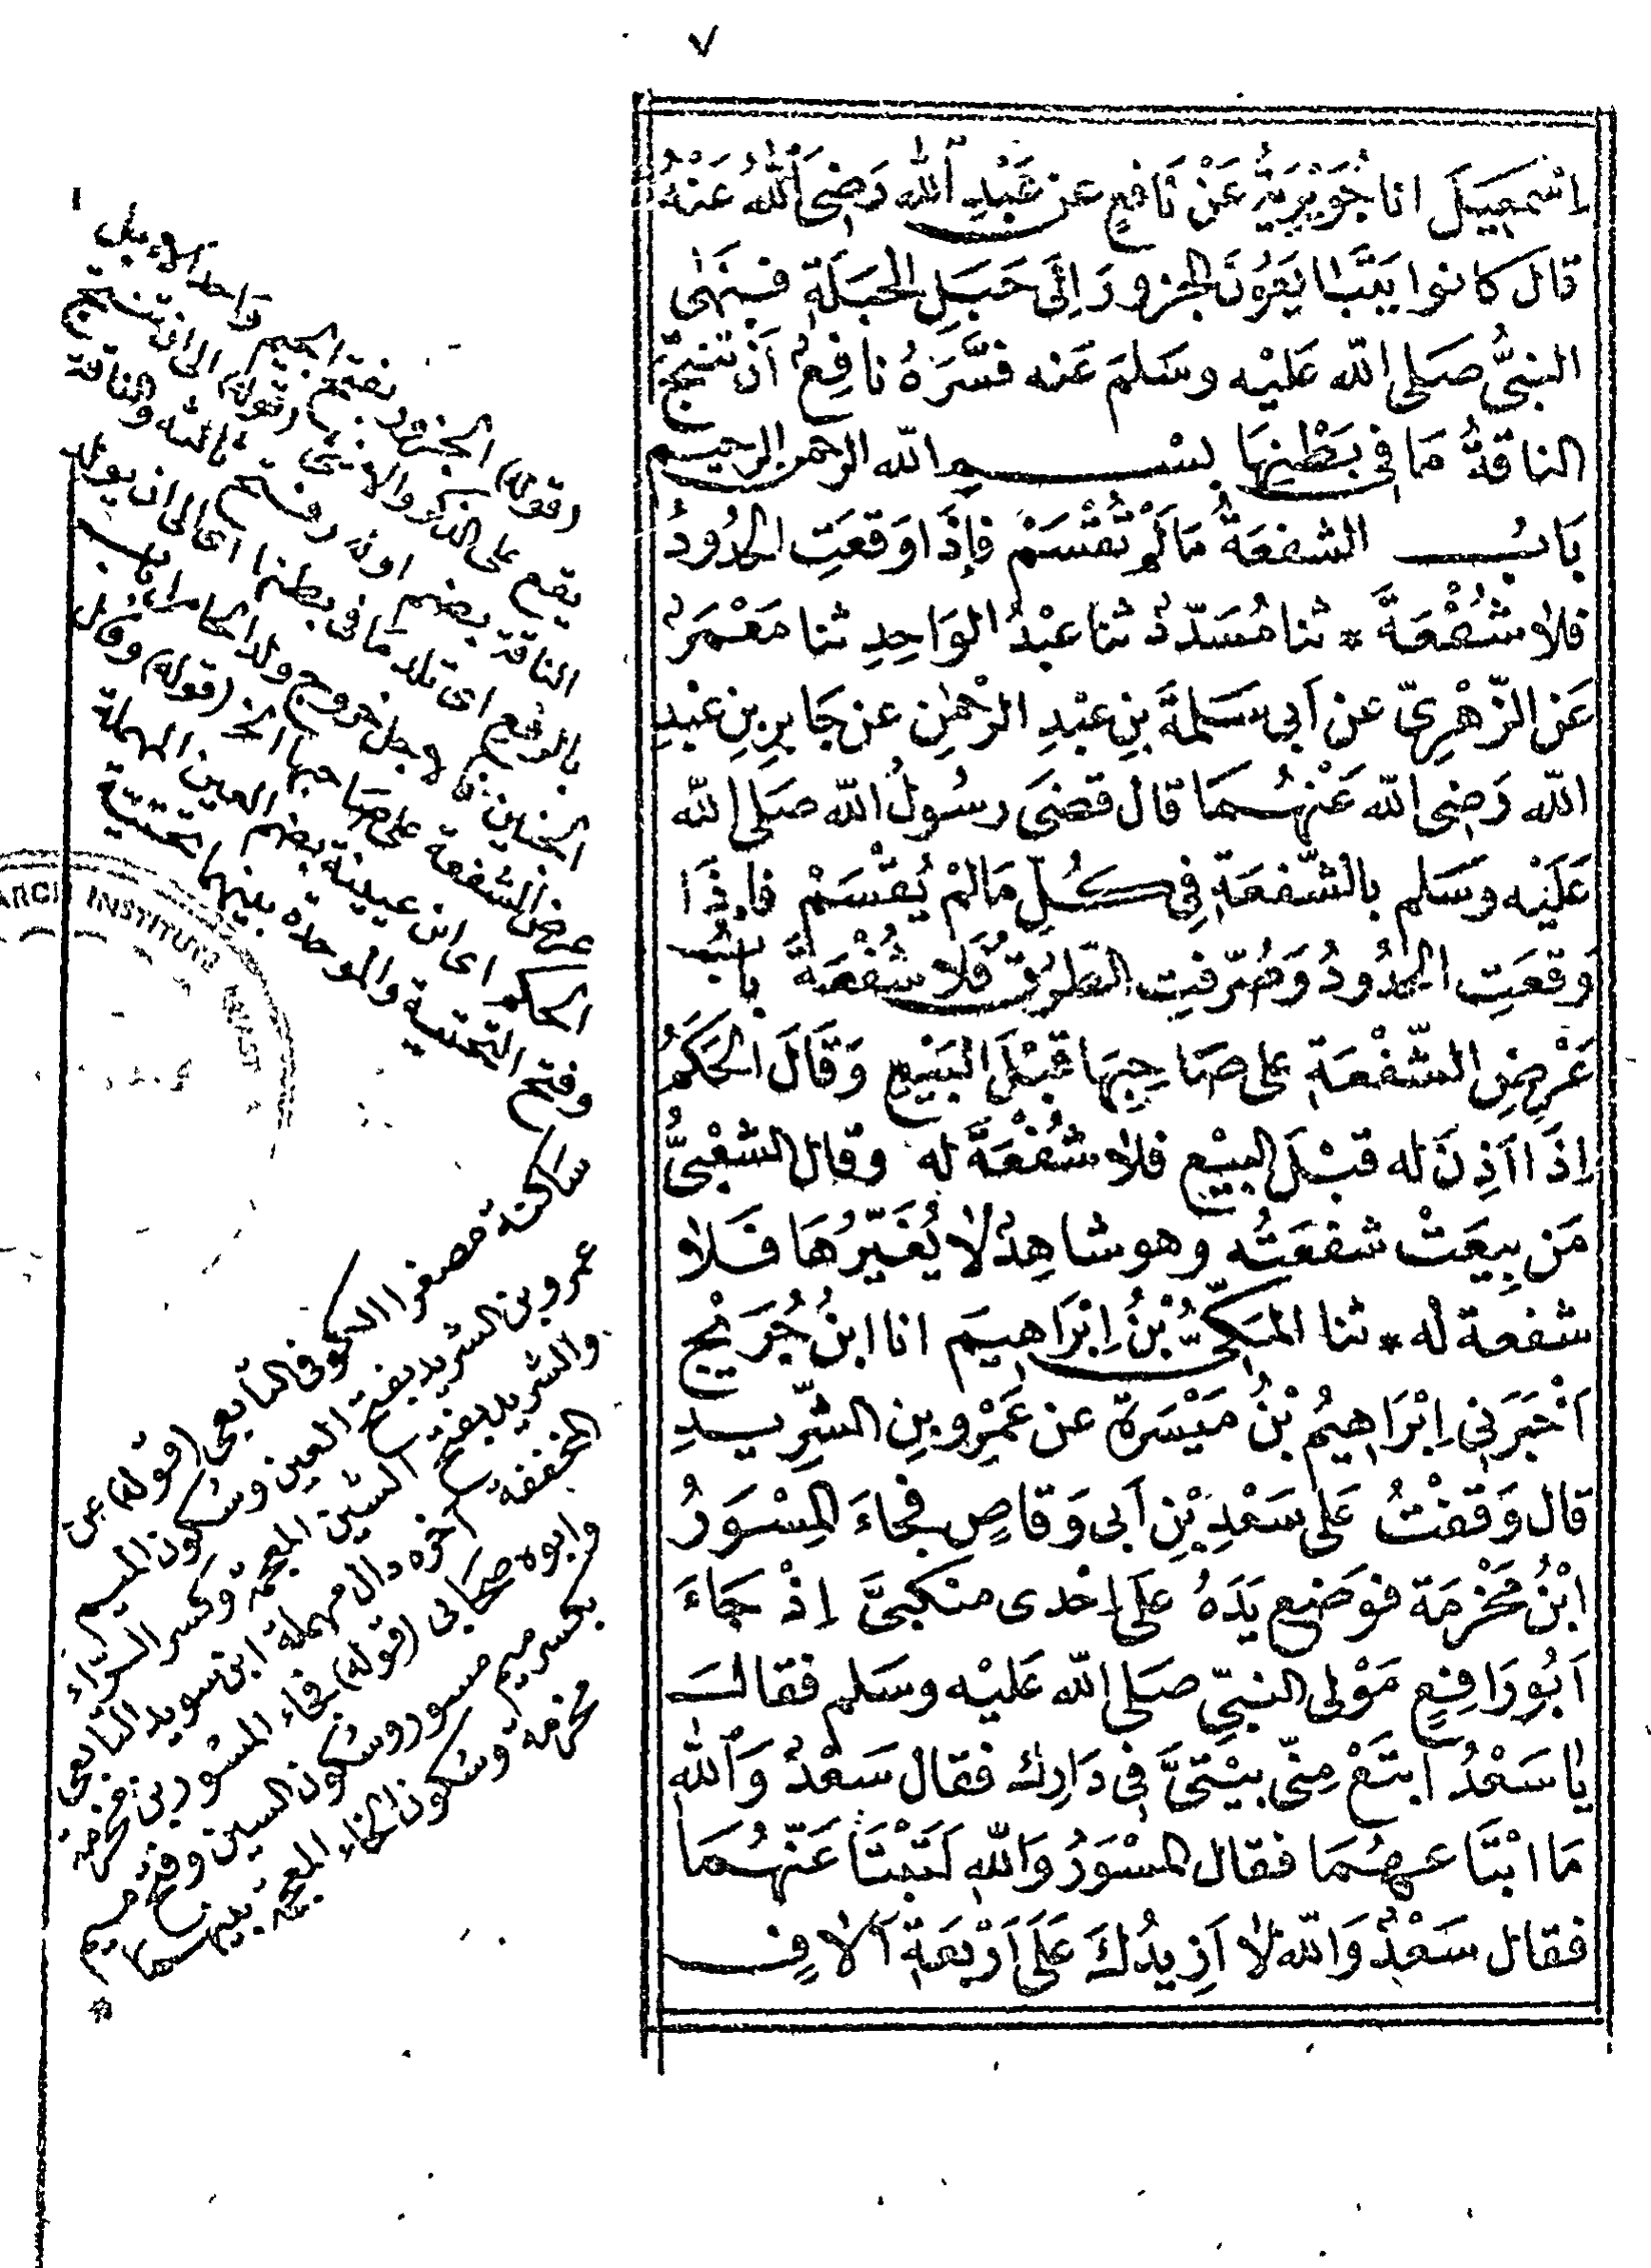 ٧
اِسْمٰعِيلَ انا جُوَيْرِيَةُ عَنْ نَافِعٍ عن عَبْدِ اللّٰه رَضِىَ اللّٰهُ عَنْهُ
قال كانوا يَتَبَايَعُونَ الجزورَ اِلَى حَبَلِ الحَبَلَةِ فنَهٰى
النبىُّ صَلى اللّه عَلَيْه وسَلمَ عَنه فَسَّرَهُ نافِعٌ اَنْ تُنتجَ
الناقةُ مَا فى بَطْنِهَا بســم اللّه الرحمن الرحيم
بَابُ الشفعَةُ مَا لَمْ تُقْسَمْ فاِذَا وَقعَتِ الحُدُودُ
فلا شُفْعَةَ * ثنا مُسَدّدٌ ثنا عَبْدُ الوَاحِدِ ثنا مَعْمَرٌ
عَن الزّهْرِىّ عن اَبى سَلمَةَ بنِ عبْدِ الرحْمٰنِ عن جَابِرِ بنِ عَبْدِ
اللّه رَضِى اللّه عَنْهُمَا قال قضَى رسُولُ اللّه صَلى اللّه
عَلَيْه وسَلم بالشّفعَةِ فِى كُلِّ مَا لمْ يُقْسَمْ فاِذَا
وَقعَتِ الحُدُودُ وَصُرّفتِ الطرُقُ فَلا شُفْعَةَ بابُ
عَرْضِ الشّفْعَةِ على صَاحِبِهَا قَبْلَ البَيْعِ وَقَالَ الحَكَمُ
اِذَا اَذِنَ له قبْلَ البيْعِ فلا شُفْعَةَ له وقال الشعْبىُّ
مَن بِيعَتْ شفعَتُه وهو شاهِدٌ لا يُغَيّرُهَا فَلا
شفعة له * ثنا المَكّىُّ بْنُ اِبْرَاهِيمَ انا ابنُ جُرَيْجٍ
اَخْبَرَنِى اِبْرَاهِيمُ بْنُ مَيْسَرةَ عن عَمْرِو بنِ الشّرِيدِ
قال وَقَفْتُ عَلى سَعْدِ بْنِ اَبى وَقاصٍ فجَاءَ المِسْوَرُ
ابْنُ مَخْرَمَة فوَضع يَدَهُ عَلى اِحْدى منكبىَّ اِذْ جَاءَ
اَبُو رَافِعٍ مَوْلى النبىّ صَلى اللّه عَليْه وسَلم فقال
يا سَعْدُ ابتَعْ مِنّى بيْتىَّ فى دَارِك فقال سَعْدٌ وَاللّٰهِ
مَا ابْتَاعهُمَا فقال المسْوَرُ وَاللّهِ لَتَبْتَاعَنّهُمَا
فقال سَعْدٌ وَاللّه لا اَزِيدُكَ عَلَى اَرْبَعَةِ آلافٍ
(قوله) الجزور بفتح الجيم واحد الابل
يقع على الذكر والانثى (قوله) الى ان تنتج
الناقة بضم اوله وفتح ثالثه والناقة
بالرفع اى تلد ما فى بطنها اى الى ان يولد
عرض الشفعة على صاحبها الخ (قوله) وقال
الحكم اى ابن عيينة بضم العين المهملة
وفتح التحتية والموحدة بينها تحتية
ساكنة مصغرا الكوفى التابعى (قوله) عن
عمرو بن الشريد بفتح العين وسكون الميم
والشريد بفتح الشين المعجمة وكسر الراء
المخففة آخره دال مهملة ابن سويد التابعى
وابوه صحابى (قوله) فجاء المسور بن مخرمة
بكسر ميم مسور وسكون السين وفتح ميم
مخرمة وسكون الخاء المعجمة بينهما
*
ARCH INSTITUTE